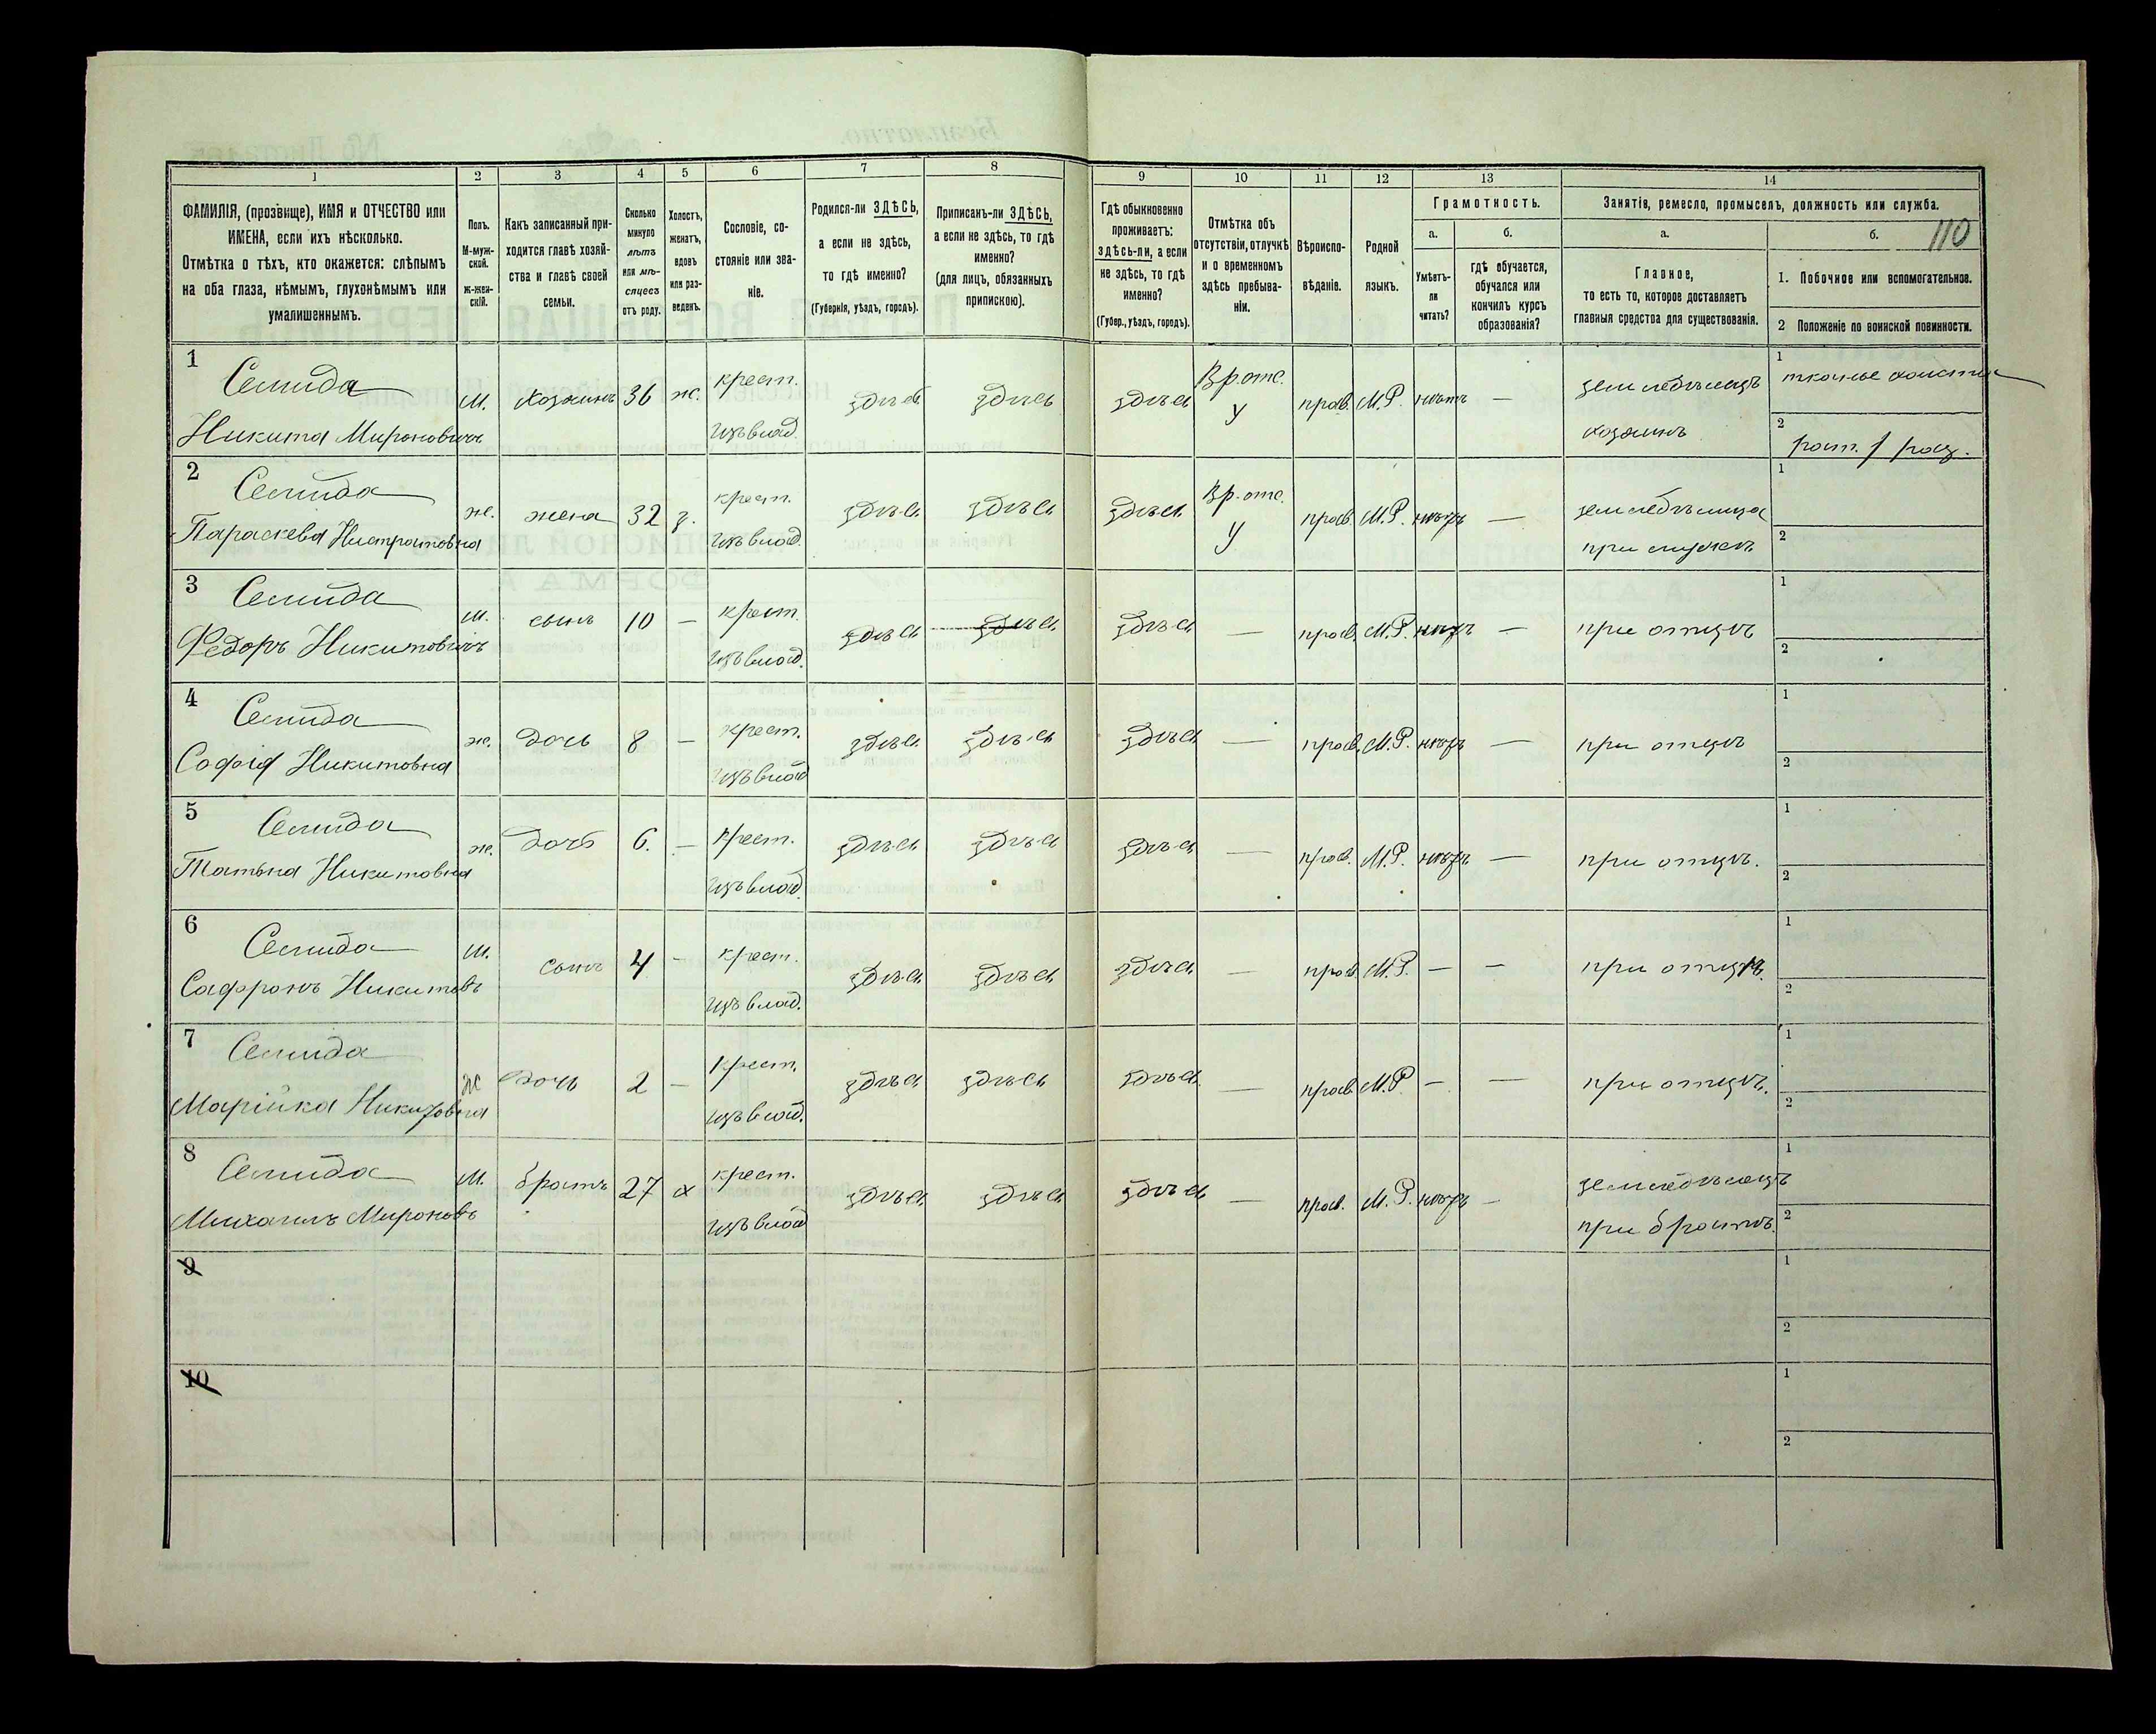 1 2 3 4 5 6 7 8 9 10 11 12 13 14
ФАМИЛІЯ, (прозвище), ИМЯ и ОТЧЕСТВО или
ИМЕНА, если ихъ нѣсколько.
Отмѣтка о тѣхъ, кто окажется: слѣпымъ
на оба глаза, нѣмымъ, глухонѣмымъ или
умалишеннымъ.
Полъ.
М-муж-
ской.
ж-жен-
скій.
Какъ записанный при-
ходится главѣ хозяй-
ства и главѣ своей
семьи.
Сколько
минуло
лѣтъ
или мѣ-
сяцевъ
отъ роду.
Холостъ,
женатъ,
вдовъ
или раз-
веденъ.
Сословіе, со-
стояніе или зва-
ніе.
Родился-ли ЗДѢСЬ,
а если не здѣсь,
то гдѣ именно?
(Губернія, уѣздъ, городъ).
Приписанъ-ли ЗДѢСЬ,
а если не здѣсь, то гдѣ
именно?
(для лицъ, обязанныхъ
припискою).
Гдѣ обыкновенно
проживаетъ:
здѣсь-ли, а если
не здѣсь, то гдѣ
именно?
(Губер., уѣздъ, городъ).
Отмѣтка объ
отсутствіи, отлучкѣ
и о временномъ
здѣсь пребыва-
ніи.
Вѣроиспо-
вѣданіе.
Родной
языкъ.
Грамотность.
а. б.
Умѣетъ-
ли
читать?
гдѣ обучается,
обучался или
кончилъ курсъ
образованія?
Занятія, ремесло, промыселъ, должность или служба.
а. б. 110
Главное,
то есть то, которое доставляетъ
главныя средства для существованія.
1. Побочное или вспомогательное.
2 Положеніе по воинской повинности.
1 Семида м. хозяинъ 36 ж. крест. здѣсь здѣсь здѣсь Вр.отс. прав. М.Р. нѣтъ — земледѣлецъ 1
Никита Мироновичъ изъ влад. У хозяинъ 2
2 Семида ж. жена 32 з. крест. здѣсь здѣсь здѣсь Вр.отс. прав. М.Р. нѣтъ — 1
Параскева изъ влад. У при мужѣ 2
3 Семида м. сынъ 10 — крест. здѣсь здѣсь здѣсь — прав. М.Р. нѣтъ — при отцѣ 1
Федоръ Никитовичъ изъ влад. 2
4 Семида ж. дочь 8 — крест. здѣсь здѣсь здѣсь — прав. М.Р. нѣтъ — при отцѣ 1
Софія Никитовна изъ влад 2
5 Семида ж. дочь 6. — крест. здѣсь здѣсь здѣсь — прав. М.Р. нѣтъ — при отцѣ. 1
Татьяна Никитовна изъ влад. 2
6 Семида м. сынъ 4 - крест. здѣсь здѣсь здѣсь — прав. М.Р. — — при отцѣ. 1
Сафронъ Никитовъ изъ влад. 2
7 Семида ж дочь 2 — крест. здѣсь здѣсь здѣсь — прав М.Р — — при отцѣ. 1
Марійка Никитовна изъ влад. 2
8 Семида м. братъ 27 х крест. здѣсь здѣсь здѣсь — прав. М.Р. нѣтъ - земледѣлецъ 1
Михаилъ Мироновъ изъ влад при братѣ. 2
9 1
2
10 1
2